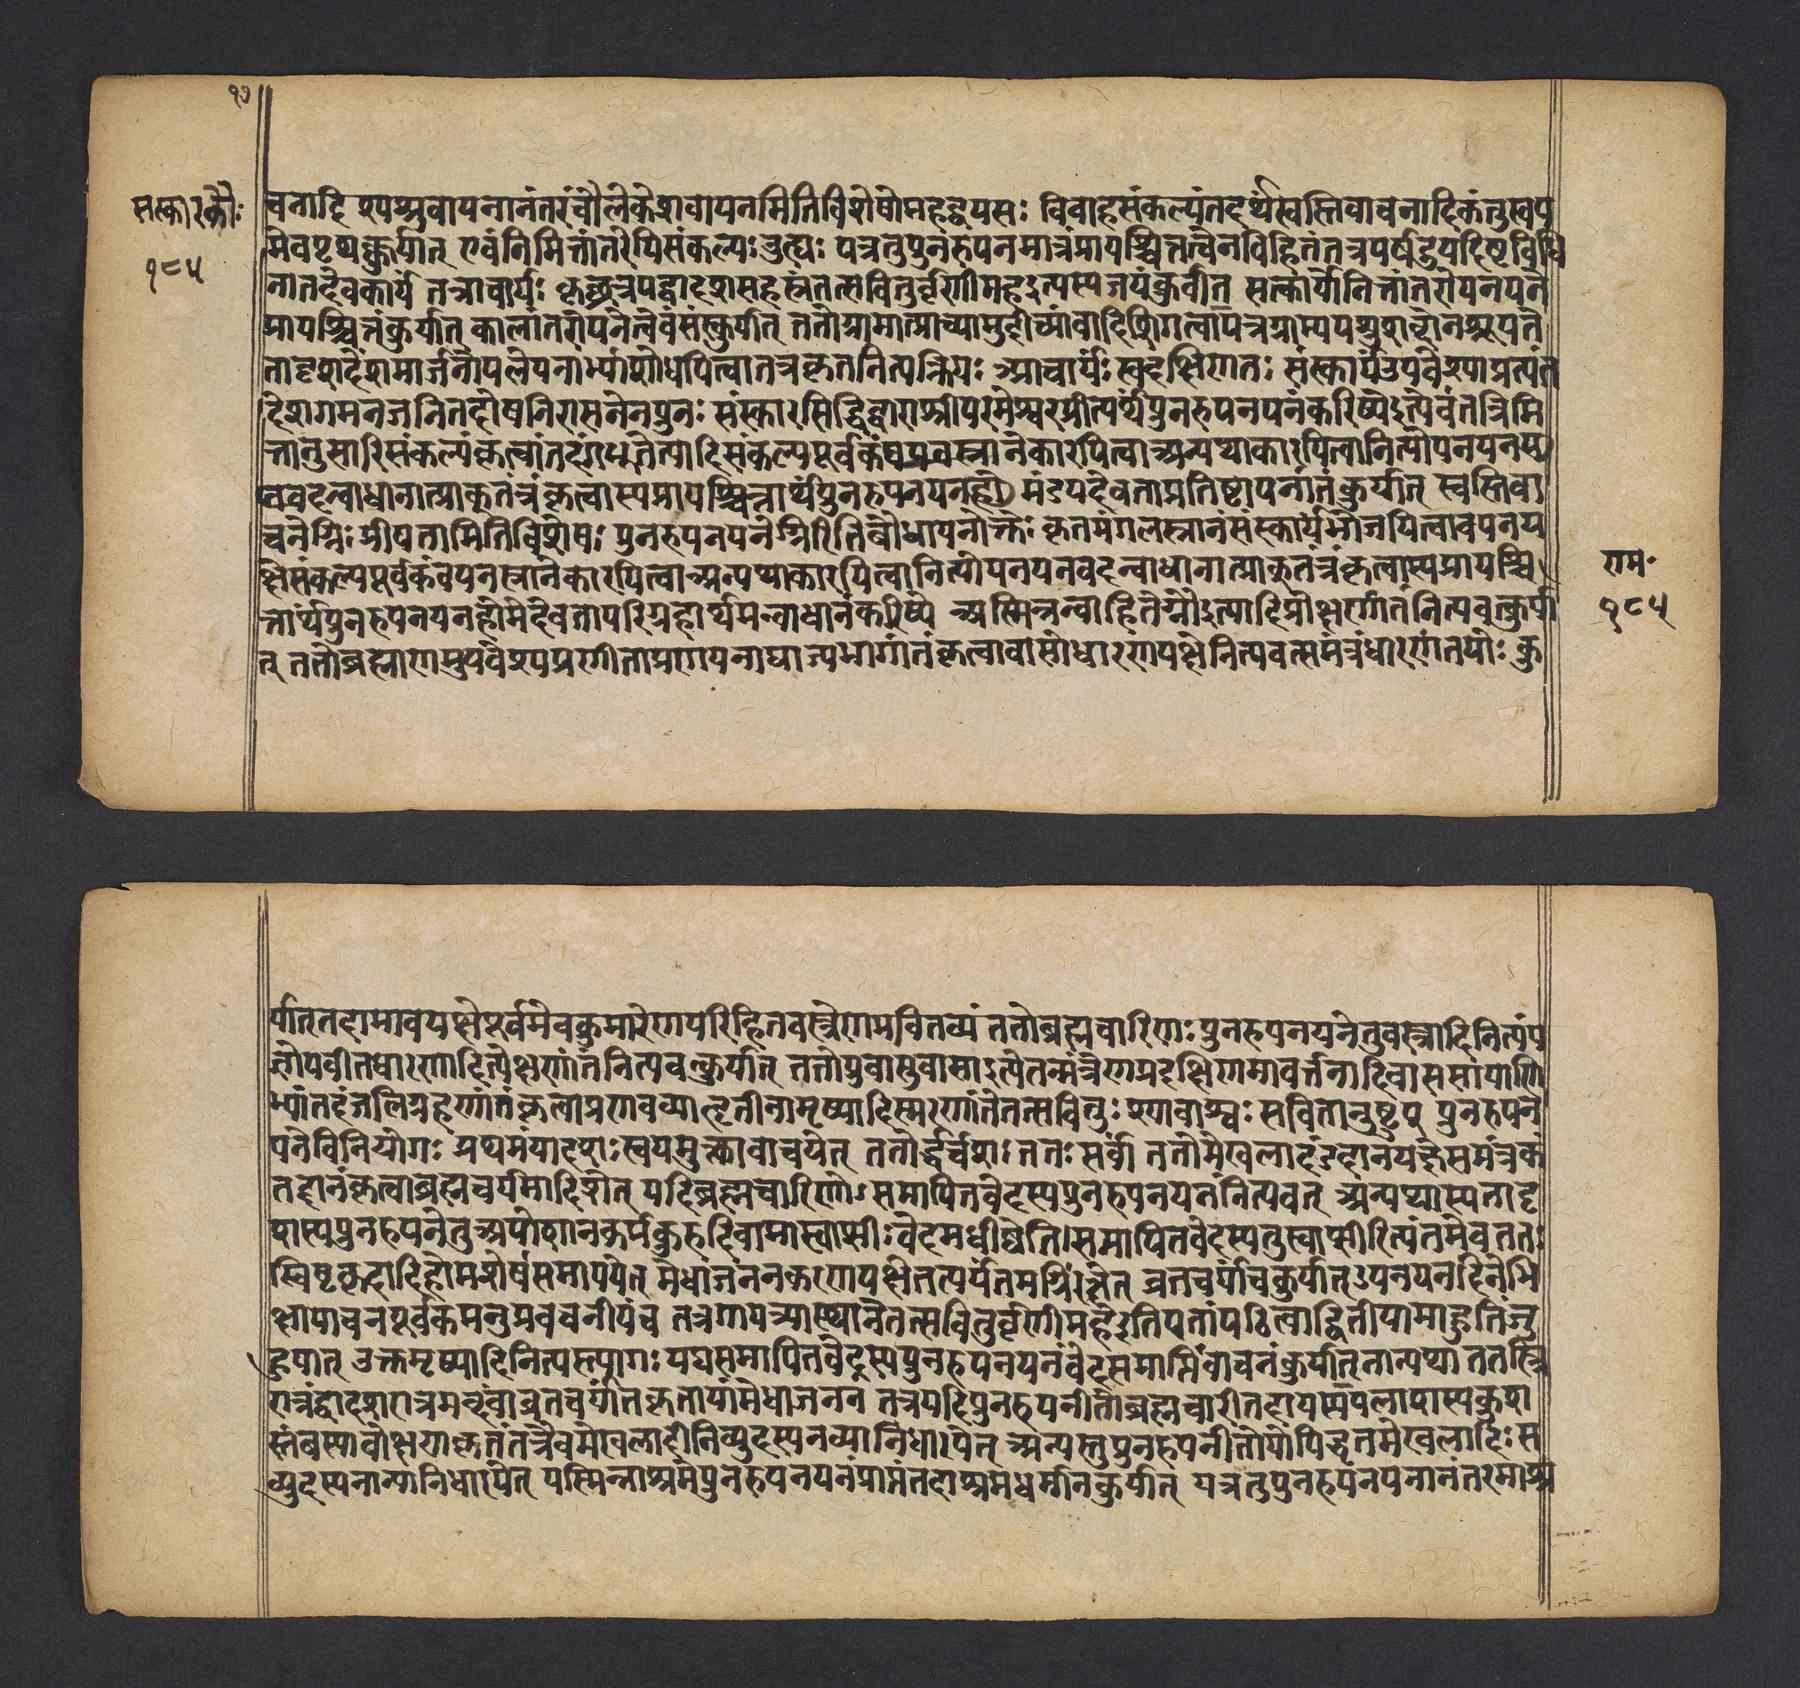 १७
संस्कारकौ॰
१८५
चनादि श्मश्रुवापनानंतरंचौलेकेशवापनमितिविशेषोमहद्वयसः विवाहसंकल्पंतदर्थंस्वस्तिवाचनादिकंतुस्वय
मेवपृथक्कुर्यात् एवंनिमित्तांतरेपिसंकल्पःउत्यः यत्रतुपुनरुपनमात्रंप्रायश्चित्तत्वेनविहितंतत्रपर्षदुपदिष्टविधि
नातदेवकार्यं तत्राचार्यः कृच्छ्रत्रयद्वादशसहस्रंतत्सवितुर्वृणीमहइत्यस्यजपंकुर्वीत संस्कार्योनिमित्तांतरोपनयने
प्रायश्चित्तंकुर्यात् कालांतरोपनेत्वेवंसंस्कुर्यात् ततोग्रामात्प्राच्यामुदीच्यांवादिशिगत्वायत्रग्राम्यपशुशब्दोनश्रूयते
तादृशदेशमार्जनोपलेपनाभ्यांशोधयित्वातत्रकृतनित्यक्रियः आचार्यः स्वदक्षिणतः संस्कार्यउपवेश्यप्रत्यंत
देशगमनजनितदोषनिरासनेनपुनः संस्कारसिद्धिद्वाराश्रीपरमेश्वरप्रीत्यर्थंपुनरुपनयनंकरिष्येइत्येवंतन्निमि
त्तानुसारिसंकल्पंकृत्वांतदंगभूतेत्यादिसंकल्पपूर्वकंवपनस्नानेकारयित्वाअन्यथाकारयित्वानित्योपनयनपू
र्ववदन्वाधानात्प्राकृतंत्रंकृत्वास्यप्रायश्चित्तार्थपुनरुपनयनहोमेमंडपदेवताप्रतिष्ठापनांतंकुर्यात् स्वस्तिवा
चनेग्निः प्रीयतामितिविशेषः पुनरुपनयनेग्निरितिबौधायनोक्तेः कृतमंगलस्नानंसंस्कार्यंभोजयित्वावपनप
क्षेसंकल्पपूर्वकंवपनस्नानेकारयित्वाअन्यथाकारयित्वानित्योपनयनवदन्वाधानात्प्राकृतंत्रंकृत्वास्यप्रायश्चि
त्तार्थपुनरुपनयनहोमेदेवतापरिग्रहार्थमन्वाधानंकरिष्ये अस्मिन्नन्वाहितेग्नौइत्यादिप्रोक्षणांतंनित्यवत्कुर्या
त् ततोब्रह्माणमुपवेश्यप्रणीताप्रणयनाघाज्यभागांतंकृत्वावासोधारणपक्षेनित्यवत्समंत्रंधारणंतयोः कु
राम॰
१८५
र्यात्तदभावपक्षेपूर्वमेवकुमारेणपरिहितवस्त्रेणभवितव्यं ततोब्रह्मचारिणः पुनरुपनयनेतुवस्त्रादिनित्यंय
ज्ञोपवीतधारणादित्येक्षणांतंनित्यवत्कुर्यात् ततोयुवासुवासाइत्येतन्मंत्रेणप्रदक्षिणमावर्त्तनादिवाससापाणि
भ्यांतदंजलिग्रहणांतंकृत्वाप्रणवव्याहृतीनामृष्यादिस्मरणांतेतत्सवितुः श्यावाश्वः सवितानुष्टुप् पुनरुपन
यनेविनियोगः प्रथमंपादशःस्वयमुक्त्वावाचयेत् ततोर्द्धर्चशः ततः सर्वां ततोमेखलादंडदानपक्षेसमंत्रकं
तद्दानंकृत्वाब्रह्मचर्यमादिशेत् यदिब्रह्मचारिणोऽसमापितवेदस्यपुनरुपनयनंनित्यवत् अन्यथास्यतादृ
शस्यपुनरुपनेतुअपोशानकर्मकुरुदिवामास्वाप्सीःवेदमधीष्वेति।समापितवेदस्यतुस्वाप्सीरित्यंतमेवततः
स्विष्टकृदादिहोमशेषंसमापयेत् मेधाजननकरणपक्षेतत्पर्यंतमग्निंरक्षेत् व्रतचर्यांचकुर्यात्उपनयनदिनेभि
क्षायाचनपूर्वकमनुप्रवचनीयंच तत्रगायत्र्यास्थानेतत्सवितुर्वृणीमहेइतिएतांपठित्वाद्वितीयामाहुतिंजु
हुयात् उक्तमृष्यादिनित्यस्त्यागः यद्यसमापितवेदस्यपुनरुपनयनंवेदसमाप्तिंवाचनंकुर्यात्तान्यथा ततस्त्रि
रात्रंद्वादशरात्रमब्दंवाव्रतचर्यांतकृतायांमेधाजननं तत्रयदिपुनरुपनीतोब्रह्मचारीतदायस्यपलाशस्यकुश
स्तंबस्यवोक्षणकृतंतत्रैवमेखलादीनिव्युदस्यनव्यानिधारयेत् अन्यस्तुपुनरुपनीतोयोपिधृतमेखलादिः स
व्युदस्यनान्यानिधारयेत् यस्मिन्नाश्रमेपुनरुपनयनंप्राप्तंतदाश्रमधर्मान्कुर्यात् यत्रतुपुनरुपनयनानंतरमाश्र